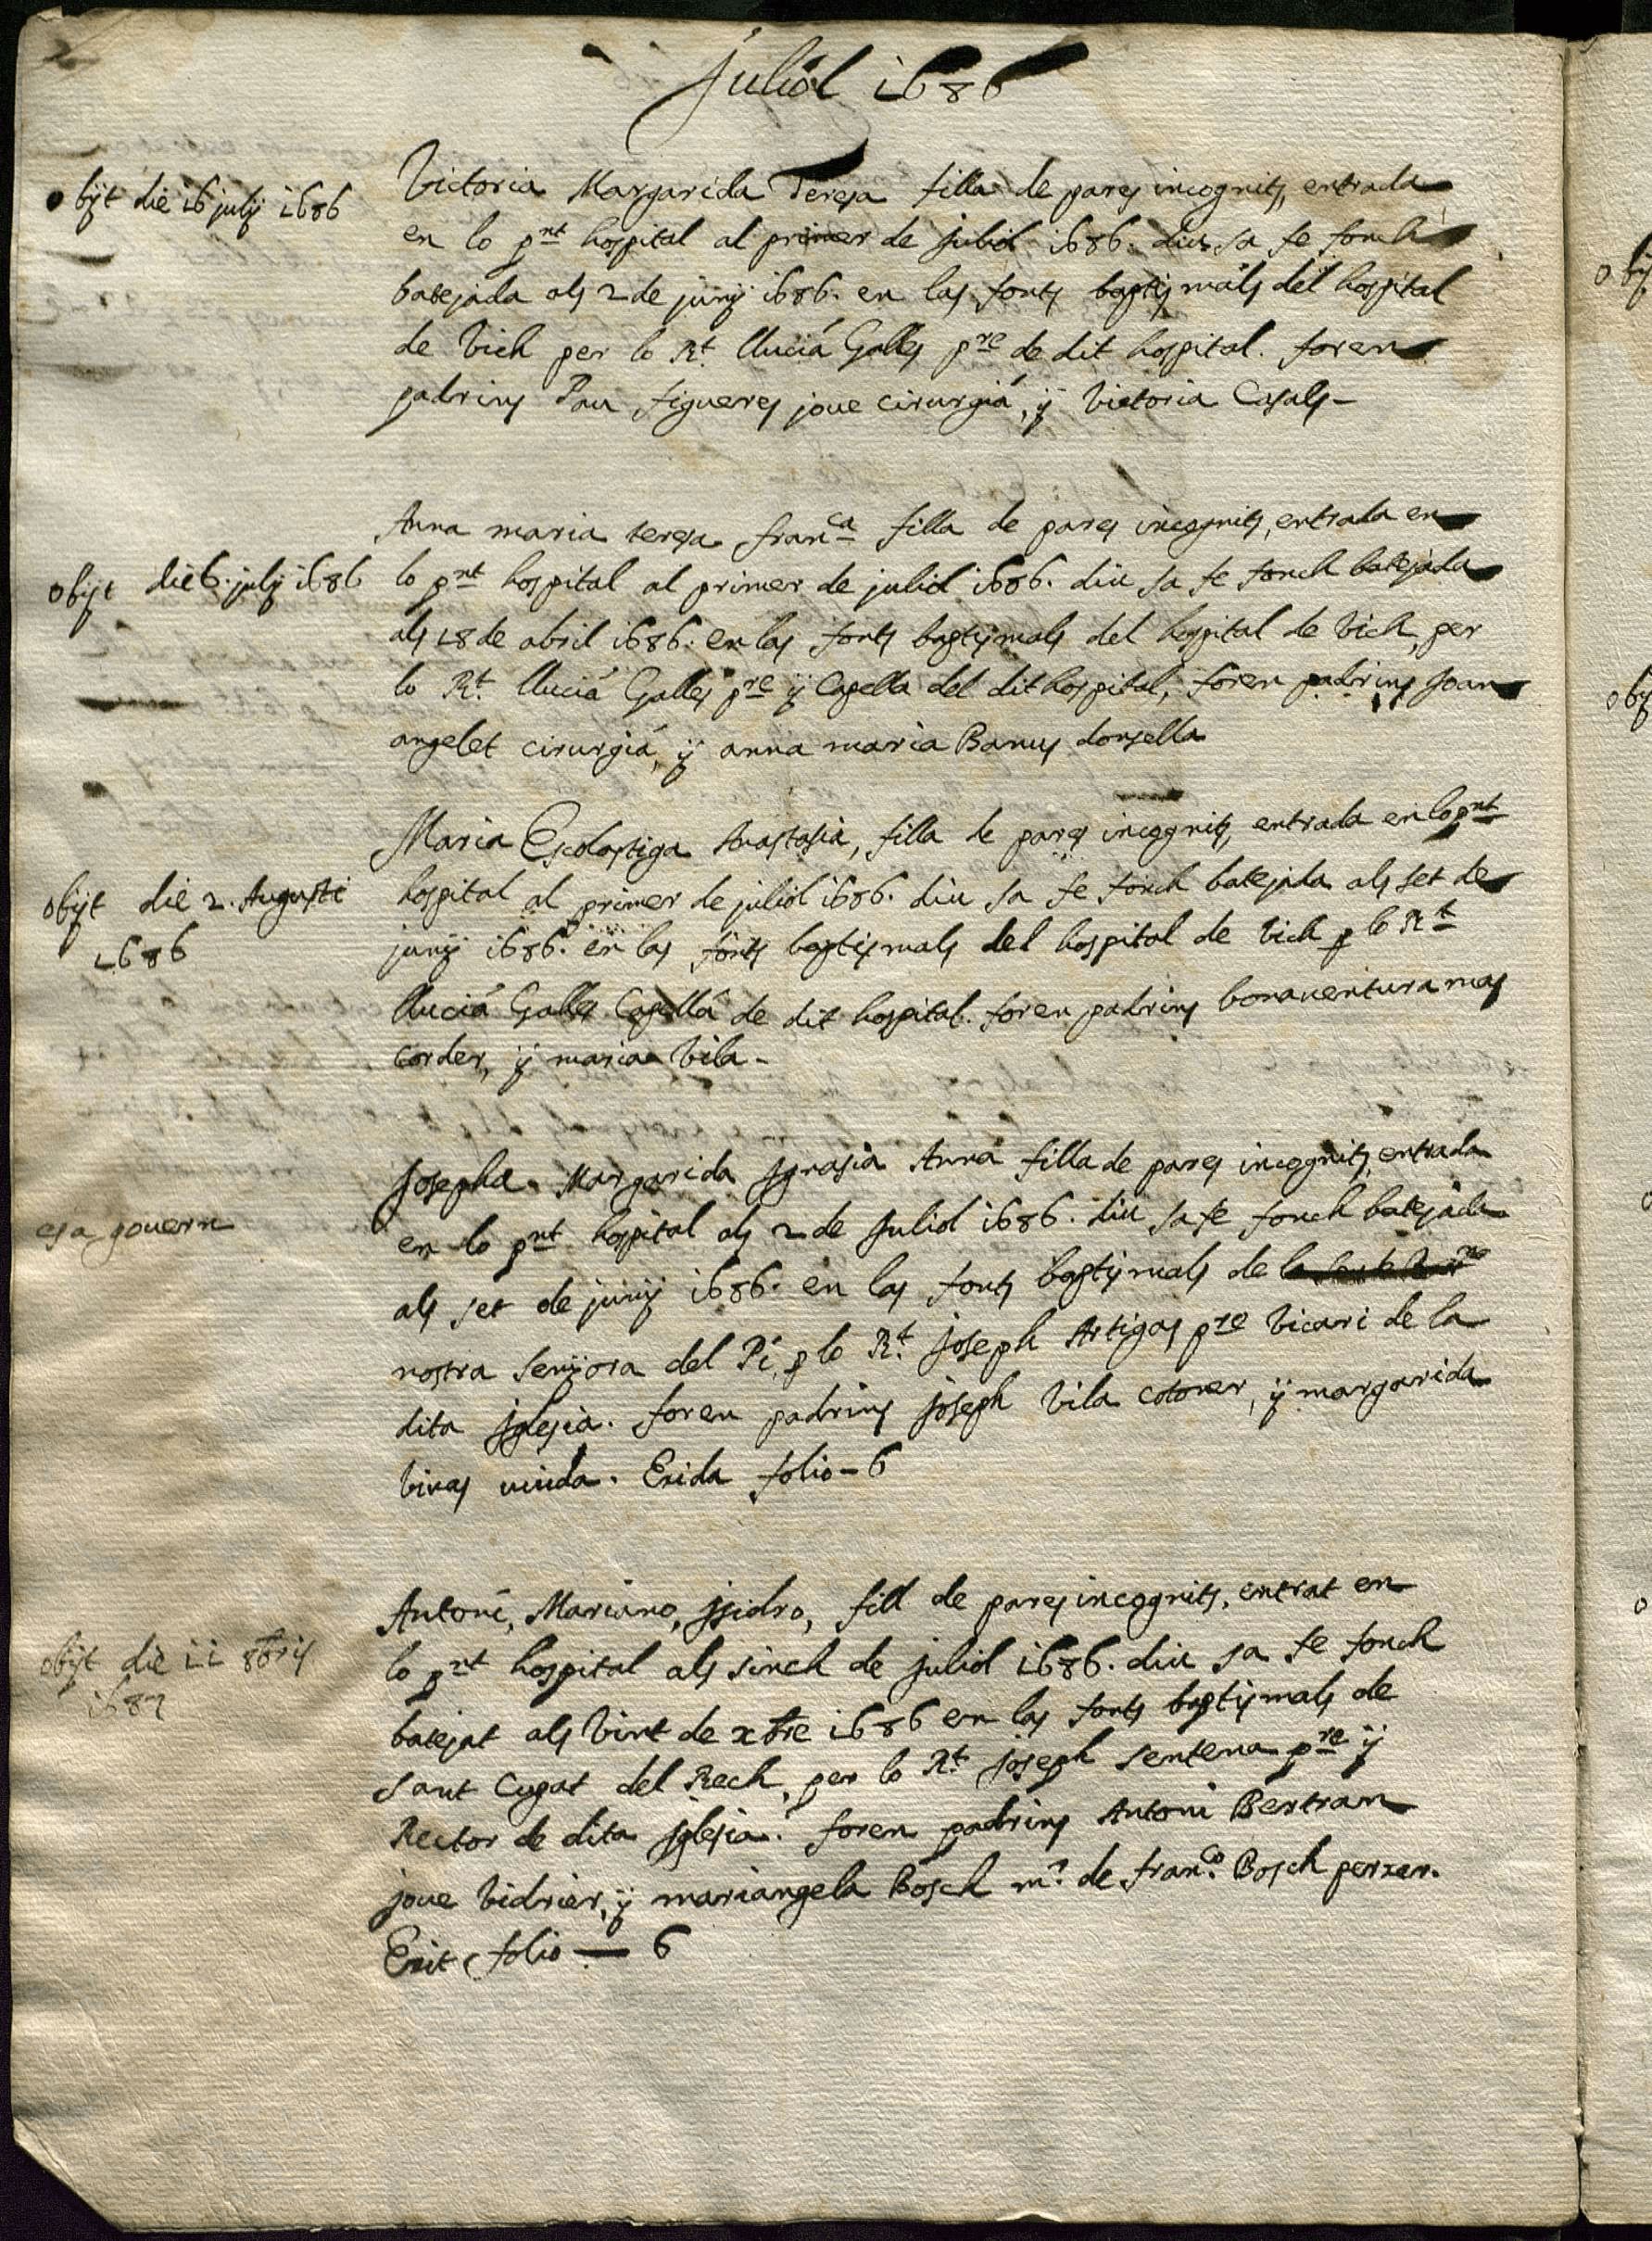 Juliol 1686
obijt die 16 julij 1686
Victoria Margarida Teresa filla de pares incognits, entrada
en lo pnt hospital al primer de Juliol 1686. diu sa fe fonch
batejada als 2 de junÿ 1686. en las fonts baptismals del hospital
de Vich per lo Rt. Llucià Galles pre de dit hospital. foren
padrins Pau figueres joue cirurgià, ÿ Victoria Casals-
Anna maria teresa franca filla de pares incognits, entrada en
obijt die 6. julij 1686
lo pnt hospital al primer de juliol 1686. diu sa fe fonch batejada
als 18 de abril 1686. en las fonts baptismals del hospital de Vich, per
lo Rt. Llucià Galles pre ÿ Capella del dit hospital, foren padrins Joan
angelet cirurgià, ÿ anna maria Banus donsella
Maria Escolastiga Anastasia, filla de pares incognits, entrada en lo pnt
obijt die 2. Augusti
1686
hospital al primer de juliol 1686. diu sa fe fonch batejada als set de
junÿ 1686. en las fonts baptismals del hospital de Vich p lo Rt
Llucià Galles Capellà de dit hospital. foren padrins bonauentura mas
corder, ÿ maria Vila-
Josepha Margarida Ignasia Anna filla de pares incognits, entrada
es a gouern
en lo pnt hospital als 2 de Juliol 1686. diu sa fe fonch batejada
als set de junÿ 1686. en las fonts baptismals de
nostra senÿora del Pi, p lo Rt. Joseph Artigas pre Vicari de la
dita Iglesia. foren padrins Joseph Vila cotoner, ÿ margarida
Viuas uiuda. Exida folio-6
Antoni, Mariano, Isidro, fill de pares incognits, entrat en
obijt die 11 8bris
1687
lo pnt hospital als sinch de juliol 1686. diu sa fe fonch
batejat als Vint de xbre 1686 en las fonts baptismals de
sant Cugat del Rech, per lo Rt. Joseph sentena pre ÿ
Rector de dita Iglesia. foren padrins Antoni Bertran
joue Vidrier, ÿ mariangela Bosch mr. de franco. Bosch perxer.
Exit folio — 6